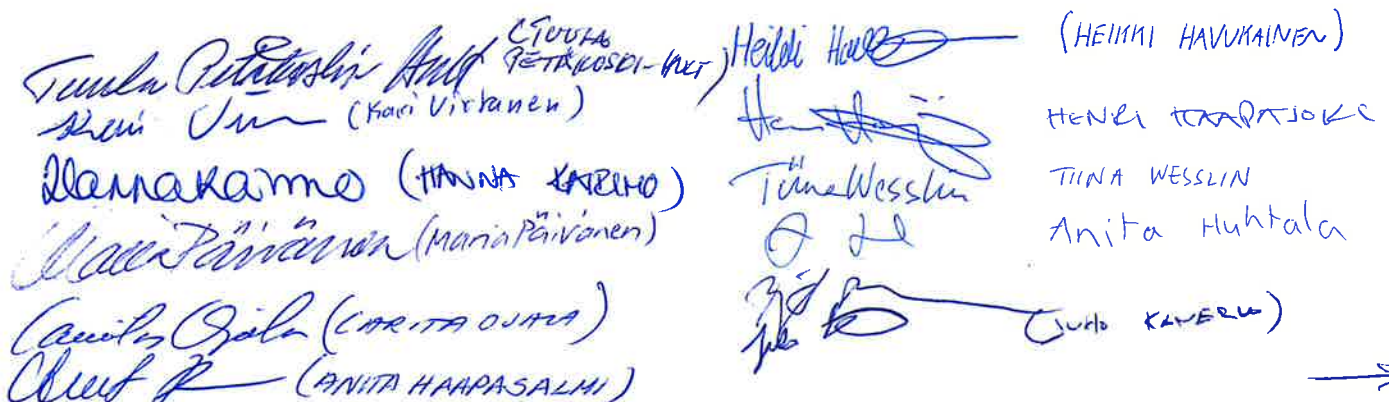 Tuula Petäkoski-Hult (TUULA PETÄKOSKI-HULT)
Kari (Kari Virtanen)
Hanna Kaimo (HANNA KAIMO)
Maria Päivänen (Maria Päivänen)
Carita Ojala (CARITA OJALA)
(ANITA HAAPASALMI)
Heikki (HEIKKI HAVUKAINEN)
Henri HENRI HAAPAJOKI
Tiina Wesslin TIINA WESSLIN
Anita Huhtala
Juho (JUHO KANERVA)